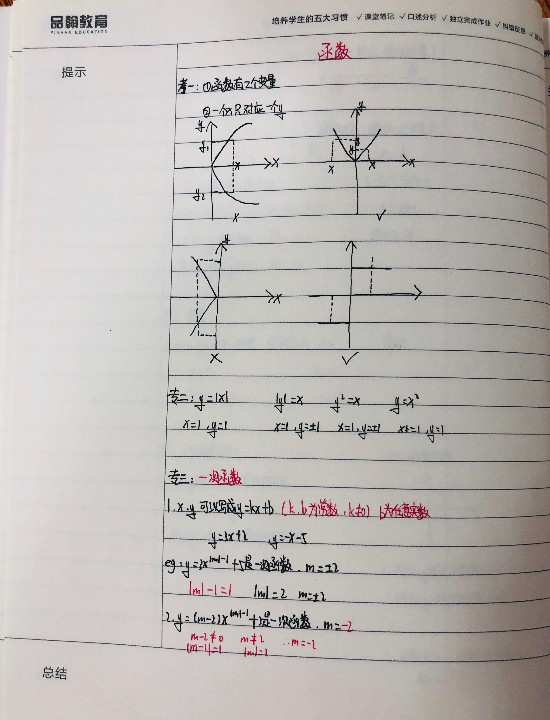 品翰教育
PINHAN EDUCATION
培养学生的五大习惯 ✓课堂笔记 ✓口述分析 ✓独立完成作业 ✓纠错反思
函数
提示
考一:①函数有2个变量
②一个x只对应一个y
y y
y1 y
x x x x x
y2
x ✓
y
x
x ✓
专二:y=|x| |y|=x y²=x y=x²
x=1,y=1 x=1,y=±1 x=1,y=±1 x=1,y=1
专三:一次函数
1.x.y可以写成y=kx+b (k.b为常数,k≠0) b为任意实数
y=3x+2 y=-x-5
eg:y=2x^|m|-1+5是一次函数.m=±2
|m|-1=1 |m|=2 m=±2
2.y=(m-2)x^|m|-1+ 是一次函数.m=-2
m-2≠0 m≠2 ∴m=-2
总结